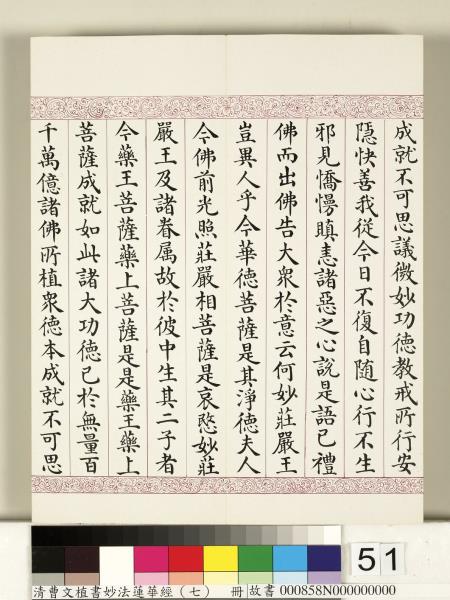 成就不可思議微妙功德教戒所行安
隱快善我從今日不復自隨心行不生
邪見憍慢瞋恚諸惡之心說是語已禮
佛而出佛告大衆於意云何妙莊嚴王
豈異人乎今華德菩薩是其淨德夫人
今佛前光照莊嚴相菩薩是哀愍妙莊
嚴王及諸眷属故於彼中生其二子者
今藥王菩薩藥上菩薩是是藥王藥上
菩薩成就如此諸大功德已於無量百
千萬億諸佛所植衆德本成就不可思
51
清曹文植書妙法蓮華經（七） 冊 故書 000858N000000000